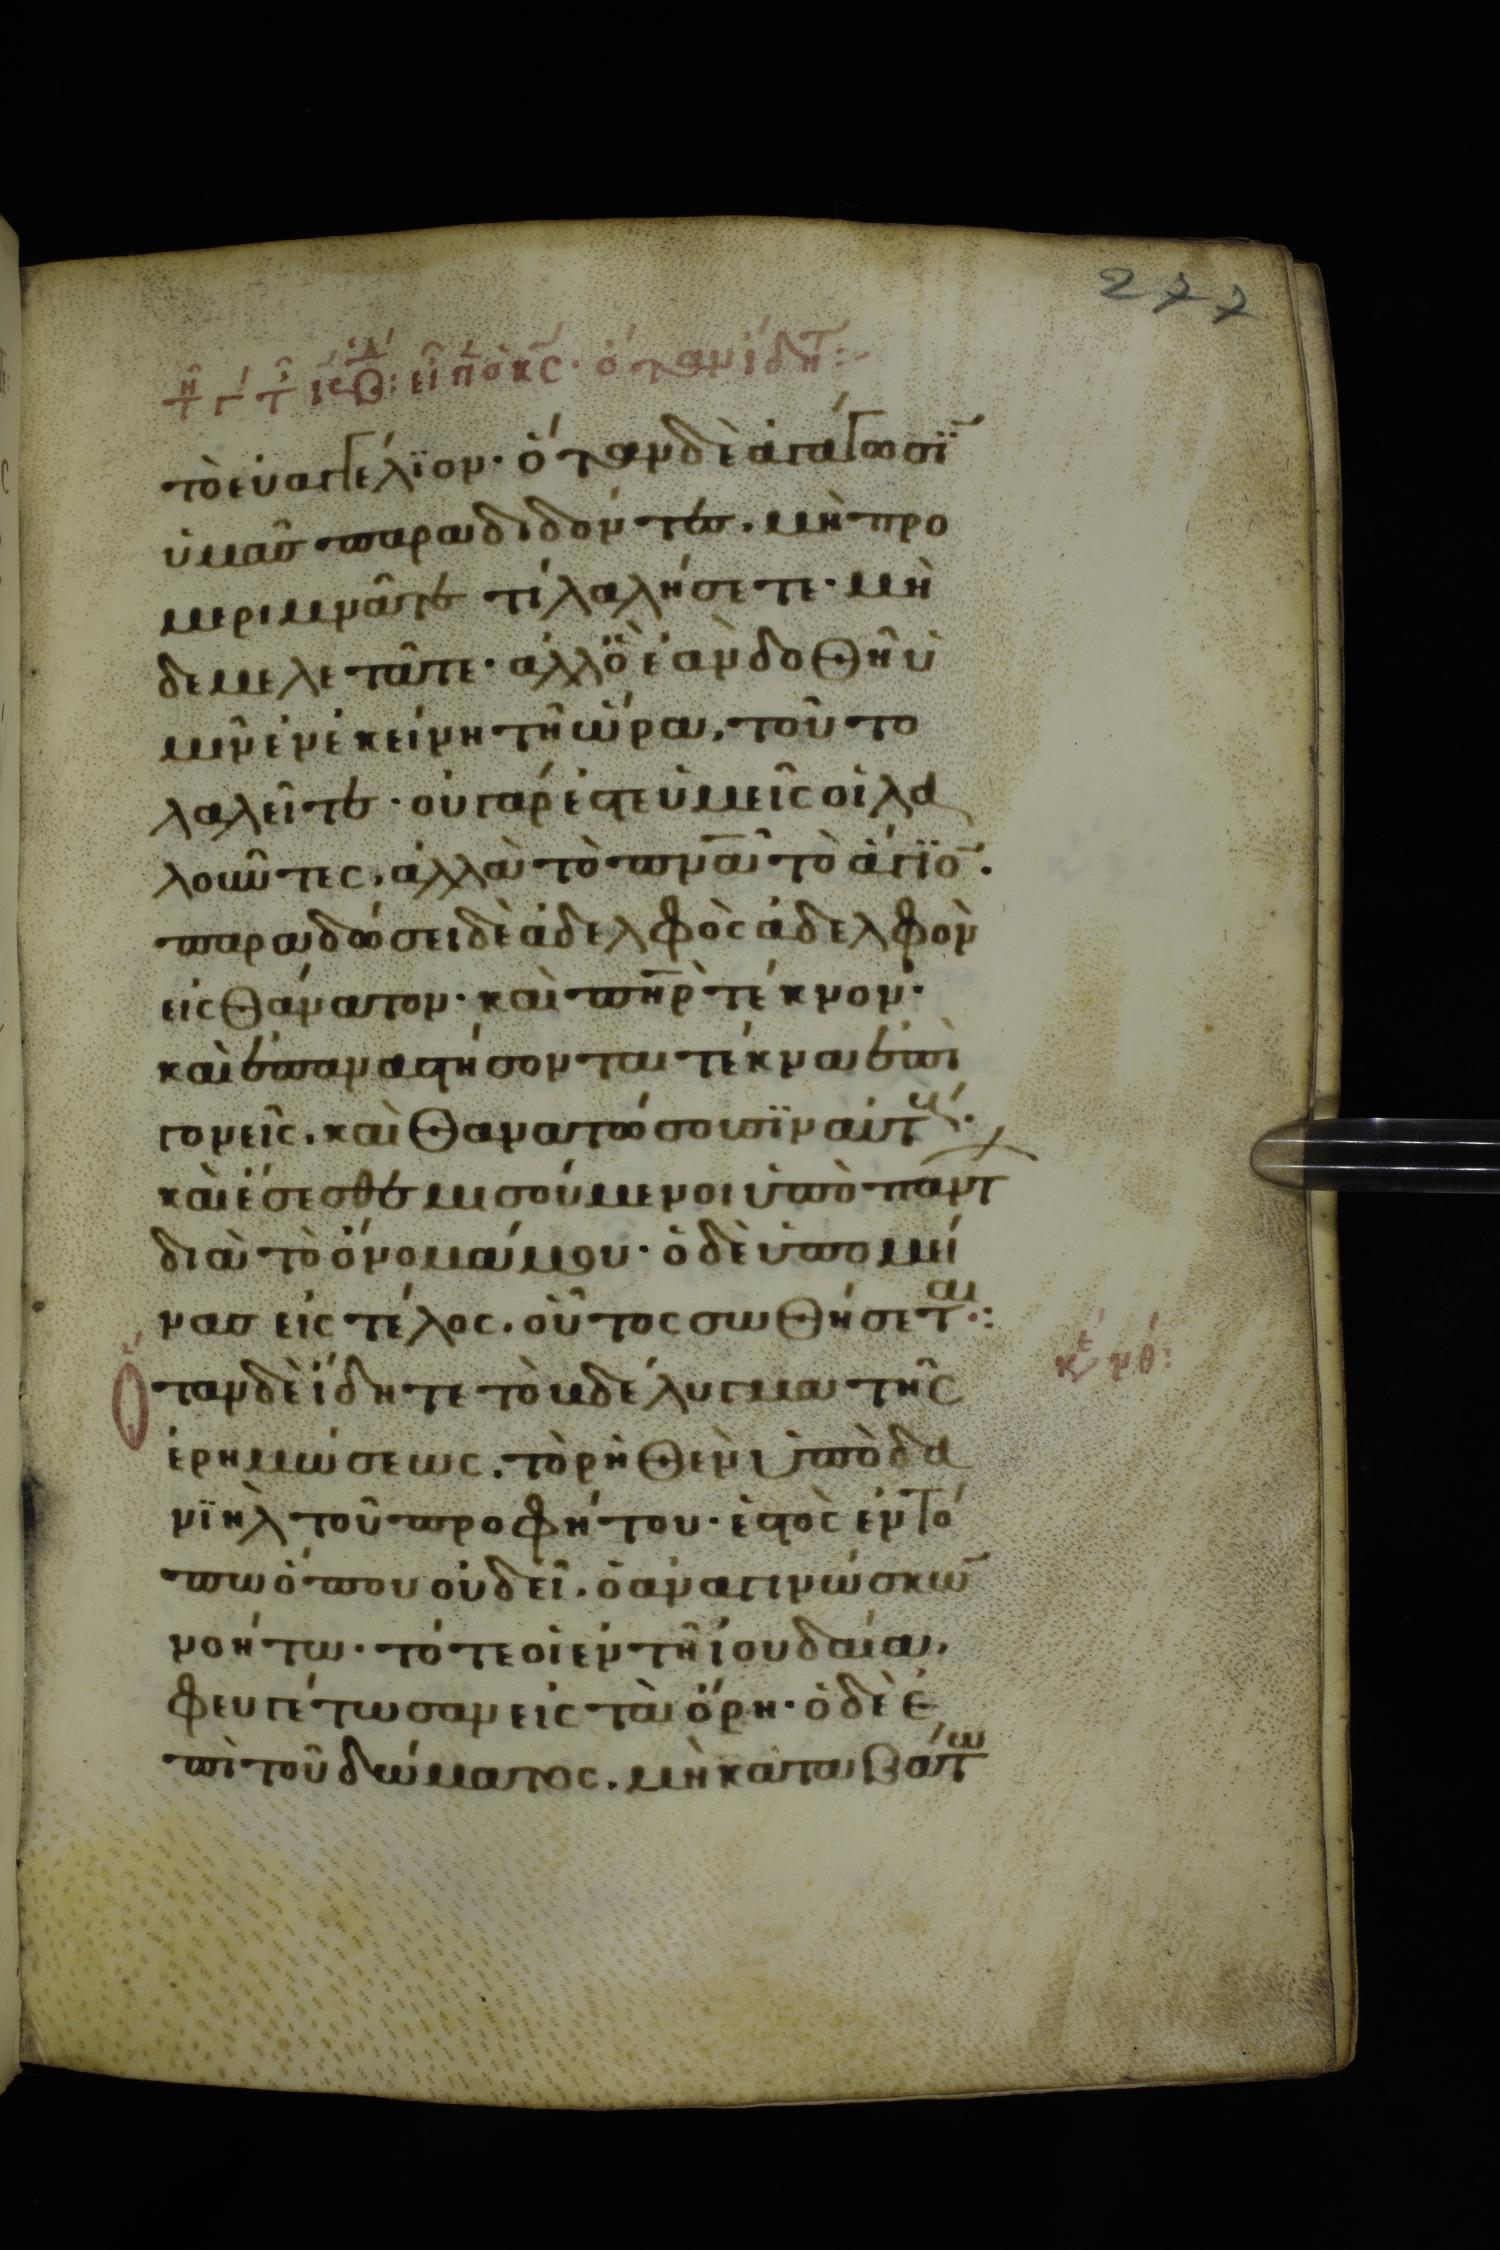 277
τὸ εὐαγγέλϊον· ὅταν δὲ ἀγάγωσϊ̄
ὑμᾶσ παραδιδόντεσ. μὴ προ
μεριμνᾶτε τί λαλήσετε· μὴ
δὲ μελετᾶτε· ἀλλ̓ ὃ ἐὰν δοθῆ ὑ
μῖν ἐν ἐκείνη τῆ ὥρα, τοῦτο
λαλεῖτε· οὐ γάρ ἐστε ὑμεῖς οἱ λα
λοῦντες, ἀλλὰ τὸ πνᾶ τὸ ἅγϊο̄.
παραδώσει δὲ ἀδελφὸς ἀδελφὸν
εἰς θάνατον· καὶ πη̄ρ τέκνον·
καὶ ἐπαναστήσονται τέκνα ἐπὶ
γονεῖς. καὶ θανατώσουσϊν αὐτούς·
καὶ ἔσεσθε μισούμενοι ὑπὸ πάντ
διὰ τὸ ὄνομά μου· ὁ δὲ ὑπομεί
νασ εἰς τέλος. οὗτος σωθήσεται·:
Ὅταν δὲ ἴδητε τὸ βδέλυγμα τῆς
ἐρημώσεως. τὸ ρηθὲν ὑπὸ δα
νϊὴλ τοῦ προφήτου· ἑστὸς ἐν τό
πω ὅπου οὐ δεῖ. ὁ ἀναγινώσκω̄
νοήτω· τότε οἱ ἐν τῆ ἰουδαία,
φευγέτωσαν εἰς τὰ ὄρη· ὁ δὲ ἐ
πὶ τοῦ δώματος. μὴ καταβάτω